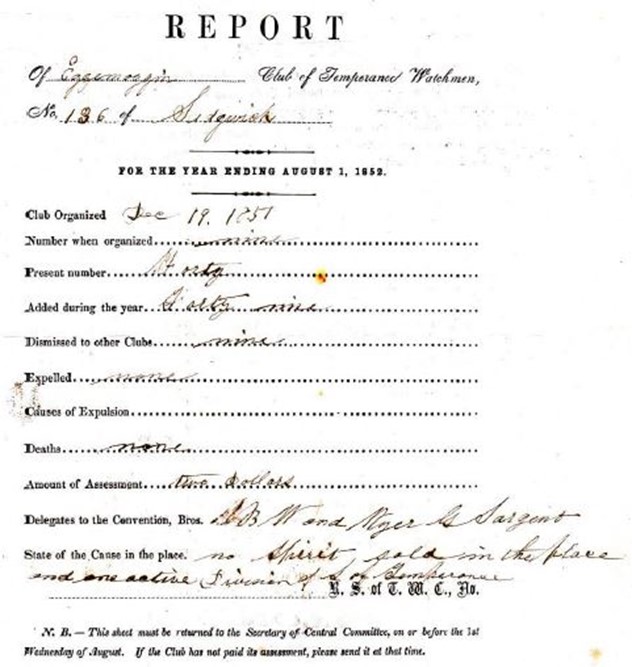 REPORT
Of Eggemoggin Club of Temperance Watchmen,
No. 136 of Sedgwick
FOR THE YEAR ENDING AUGUST 1, 1852.
Club Organized Dec 19. 1851
Number when organized nine
Present number Forty
Added during the year Forty nine
Dismissed to other Clubs nine
Expelled none
Causes of Expulsion
Deaths none
Amount of Assessment two Dollars
Delegates to the Convention, Bros. B W and Wyer G Sargent
State of the Cause in the place. no spirit sold in the place
and one active Division of S of Temperance
R. S. of T. W. C., No.
N. B. — This sheet must be returned to the Secretary of Central Committee, on or before the 1st
Wednesday of August. If the Club has not paid its assessment, please send it at that time.